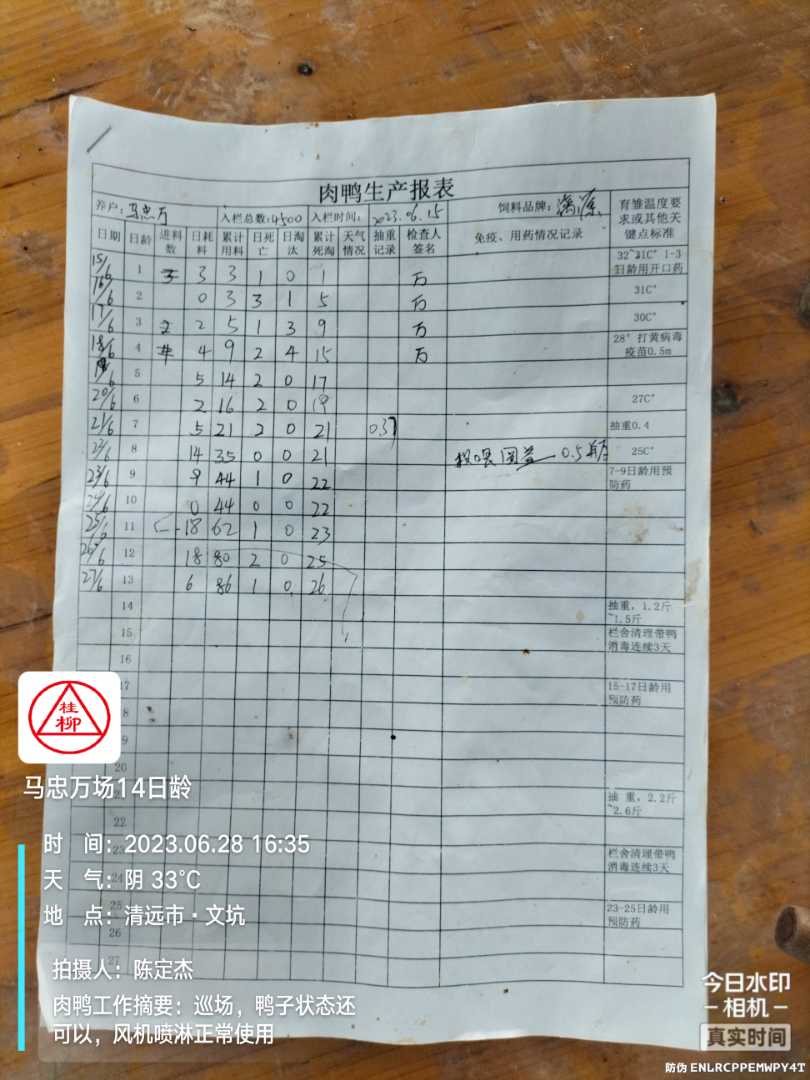 肉鸭生产报表
养户:马忠万 入栏总数:4500 入栏时间:2023.06.15 饲料品牌: 育雏温度要求或其他关键点标准
日期 日龄 进料数 日耗料 累计用料 日死亡 日淘汰 累计死淘 天气情况 抽重记录 检查人签名 免疫、用药情况记录
15/6 1 3 3 1 0 1 万 32~31C° 1-3日龄用开口药
16/6 2 0 3 3 1 5 万 31C°
17/6 3 2 5 1 3 9 万 30C°
18/6 4 4 9 2 4 15 万 28°打黄病毒疫苗0.5m
19/6 5 5 14 2 0 17
20/6 6 2 16 2 0 19 27C°
21/6 7 5 21 2 0 21 0.37 抽重0.4
22/6 8 14 35 0 0 21 0.5 25C°
23/6 9 9 44 1 0 22 7-9日龄用预防药
24/6 10 0 44 0 0 22
25/6 11 18 62 1 0 23
26/6 12 18 80 2 0 25
27/6 13 6 86 1 0 26
14 抽重，1.2斤~1.5斤
15 栏舍清理带鸭消毒连续3天
16
17 15-17日龄用预防药
8
9
20
抽重，2.2斤~2.6斤
22
23 栏舍清理带鸭消毒连续3天
24
25 23-25日龄用预防药
26
27
桂柳
马忠万场14日龄
时 间：2023.06.28 16:35
天 气：阴 33℃
地 点：清远市·文坑
拍摄人：陈定杰
肉鸭工作摘要：巡场，鸭子状态还
可以，风机喷淋正常使用
今日水印
-相机-
真实时间
防伪 ENLRCPPEMWPY4T